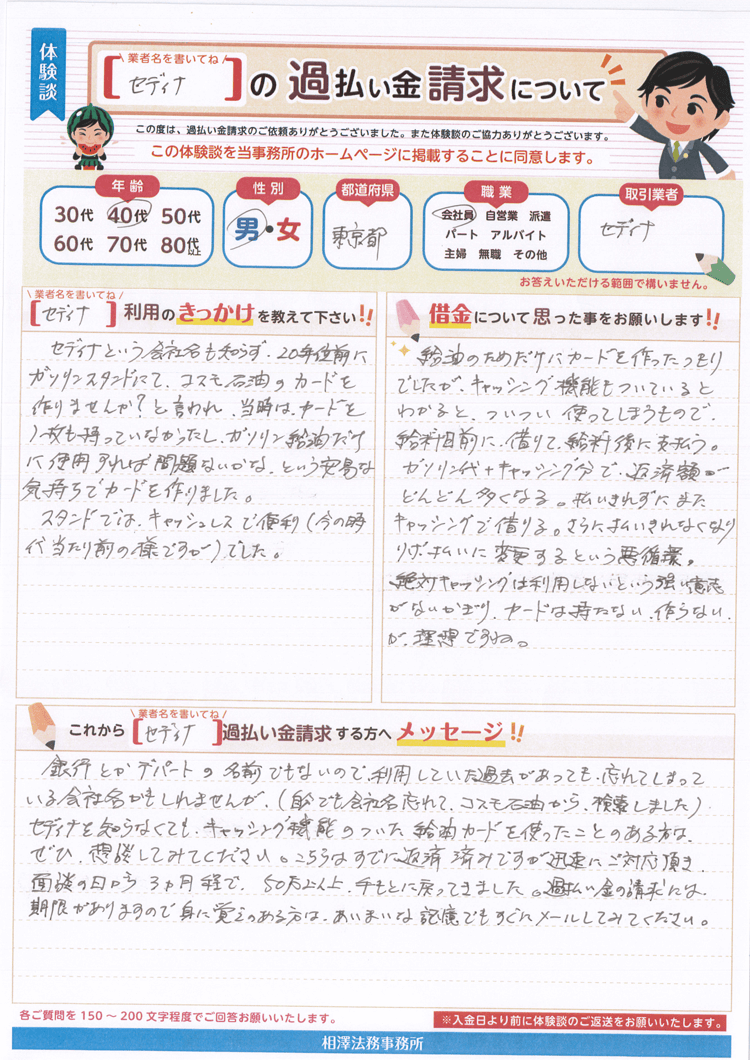 体験談
\ 業者名を書いてね /
[セディナ]の過払い金請求について
この度は、過払い金請求のご依頼ありがとうございました。また体験談のご協力ありがとうございます。
この体験談を当事務所のホームページに掲載することに同意します。
年齢
30代 40代 50代
60代 70代 80代以上
性別
男・女
都道府県
東京都
職業
会社員 自営業 派遣
パート アルバイト
主婦 無職 その他
取引業者
セディナ
お答えいただける範囲で構いません。
\ 業者名を書いてね /
[セディナ]利用のきっかけを教えて下さい!!
セディナという会社名も知らず、20年位前に
ガソリンスタンドにて、コスモ石油のカードを
作りませんか?と言われ、当時は、カードを
1枚も持っていなかったし、ガソリン給油だけ
に使用すれば問題ないかな、という安易な
気持ちでカードを作りました。
スタンドでは、キャッシュレスで便利(今の時
代当たり前の様ですが)でした。
借金について思った事をお願いします!!
給油のためだけにカードを作ったつもり
でしたが、キャッシング機能もついていると
わかると、ついつい使ってしまうもので、
給料日前に、借りて、給料後に支払う。
ガソリン代+キャッシング分で、返済額が
どんどん多くなる。払いきれずにまた
キャッシングで借りる。さらに払いきれなくなり
リボ払いに変更するという悪循環。
絶対キャッシングは利用しないという強い意志
がないかぎり、カードは持たない、作らない、
が、理想ですね。
\ 業者名を書いてね /
これから[セディナ]過払い金請求する方へメッセージ!!
銀行とかデパートの名前でもないので、利用していた過去があっても、忘れてしまって
いる会社名かもしれませんが、(自分でも会社名忘れて、コスモ石油から、検索しました)
セディナを知らなくても、キャッシング機能のついた給油カードを使ったことのある方は、
ぜひ、想談してみてください。こちらはすでに返済済みですが迅速にご対応頂き、
面談の日から3ヵ月程で、50万以上、手もとに戻ってきました。過払い金の請求には
期限がありますので身に覚えのある方は、あいまいな記憶でもすぐにメールしてみてください。
各ご質問を150~200文字程度でご回答お願いいたします。
※入金日より前に体験談のご返送をお願いいたします。
相澤法務事務所